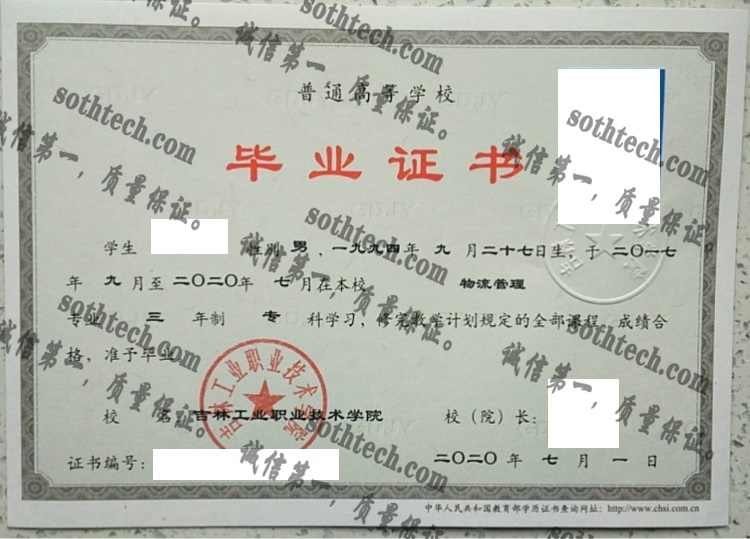 普通高等学校
毕业证书
学生 性别 男，一九九四年 九 月二十七日生，于二〇一七
年 九 月至二〇二〇年 七 月在本校 物流管理
专业 三 年制 专 科学习，修完教学计划规定的全部课程，成绩合
格，准予毕业
校 名 吉林工业职业技术学院 校（院）长：
证书编号： 二〇二〇年 七 月 一 日
中华人民共和国教育部学历证书查询网址：http://www.chsi.com.cn
吉林工业职业技术学院
sothtech.com
诚信第一，质量保证。
sothtech.com
诚信第一，质量保证。
sothtech.com
诚信第一，质量保证。
sothtech.com
诚信第一，质量保证。
sothtech.com
诚信第一，质量保证。
sothtech.com
诚信第一，质量保证。
sothtech.com
诚信第一，质量保证。
sothtech.com
诚信第一，质量保证。